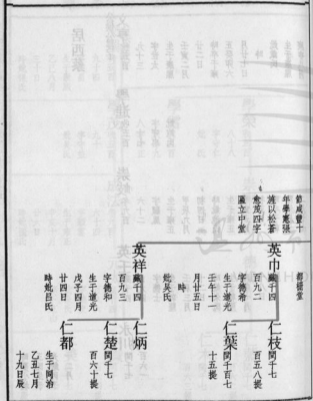 節咸豐十
年學憲張
旌以松蒼
意茂四字
匾立中堂
都樹堂
英巾
圖千四
百九二
字德希
生于道光
壬午十一
月廿五日
時
妣吳氏
仁枝
問千七
百五八提
仁葉
問千百七
十五提
英祥
圖千四
百九三
字德和
生于道光
戊子四月
廿四日
時妣呂氏
仁炳
仁楚
問千七
百六十提
仁都
生于同治
乙丑七月
十九日辰